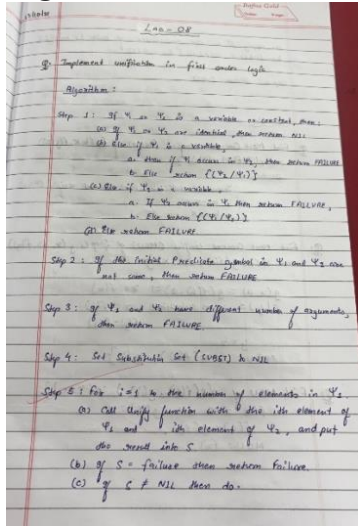 Lab - 08
Q. Implement unification in first order logic
Algorithm :
Step 1 : If Ψ1 or Ψ2 is a variable or constant, then :
(a) If Ψ1 or Ψ2 are identical, then return NIL
(b) Else if Ψ1 is a variable,
a. then if Ψ1 occurs in Ψ2, then return FAILURE
b. Else return {(Ψ2/Ψ1)}
(c) Else if Ψ2 is a variable,
a. If Ψ2 occurs in Ψ1 then return FAILURE,
b. Else return {(Ψ1/Ψ2)}
(d) Else return FAILURE.
Step 2 : If the initial Predicate symbol in Ψ1 and Ψ2 are
not same, then return FAILURE
Step 3 : If Ψ1 and Ψ2 have different number of arguments,
then return FAILURE
Step 4 : Set Substitution Set (SUBST) to NIL
Step 5 : For i=1 to the number of elements in Ψ1.
(a) Call Unify function with the ith element of
Ψ1 and ith element of Ψ2, and put
the result into S
(b) If S = failure then return Failure.
(c) If S ≠ NIL then do.